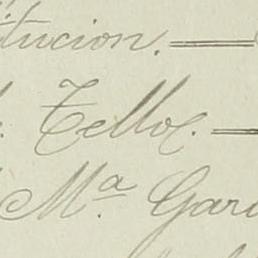 titucion. —
Telloz. —
Mª Garc